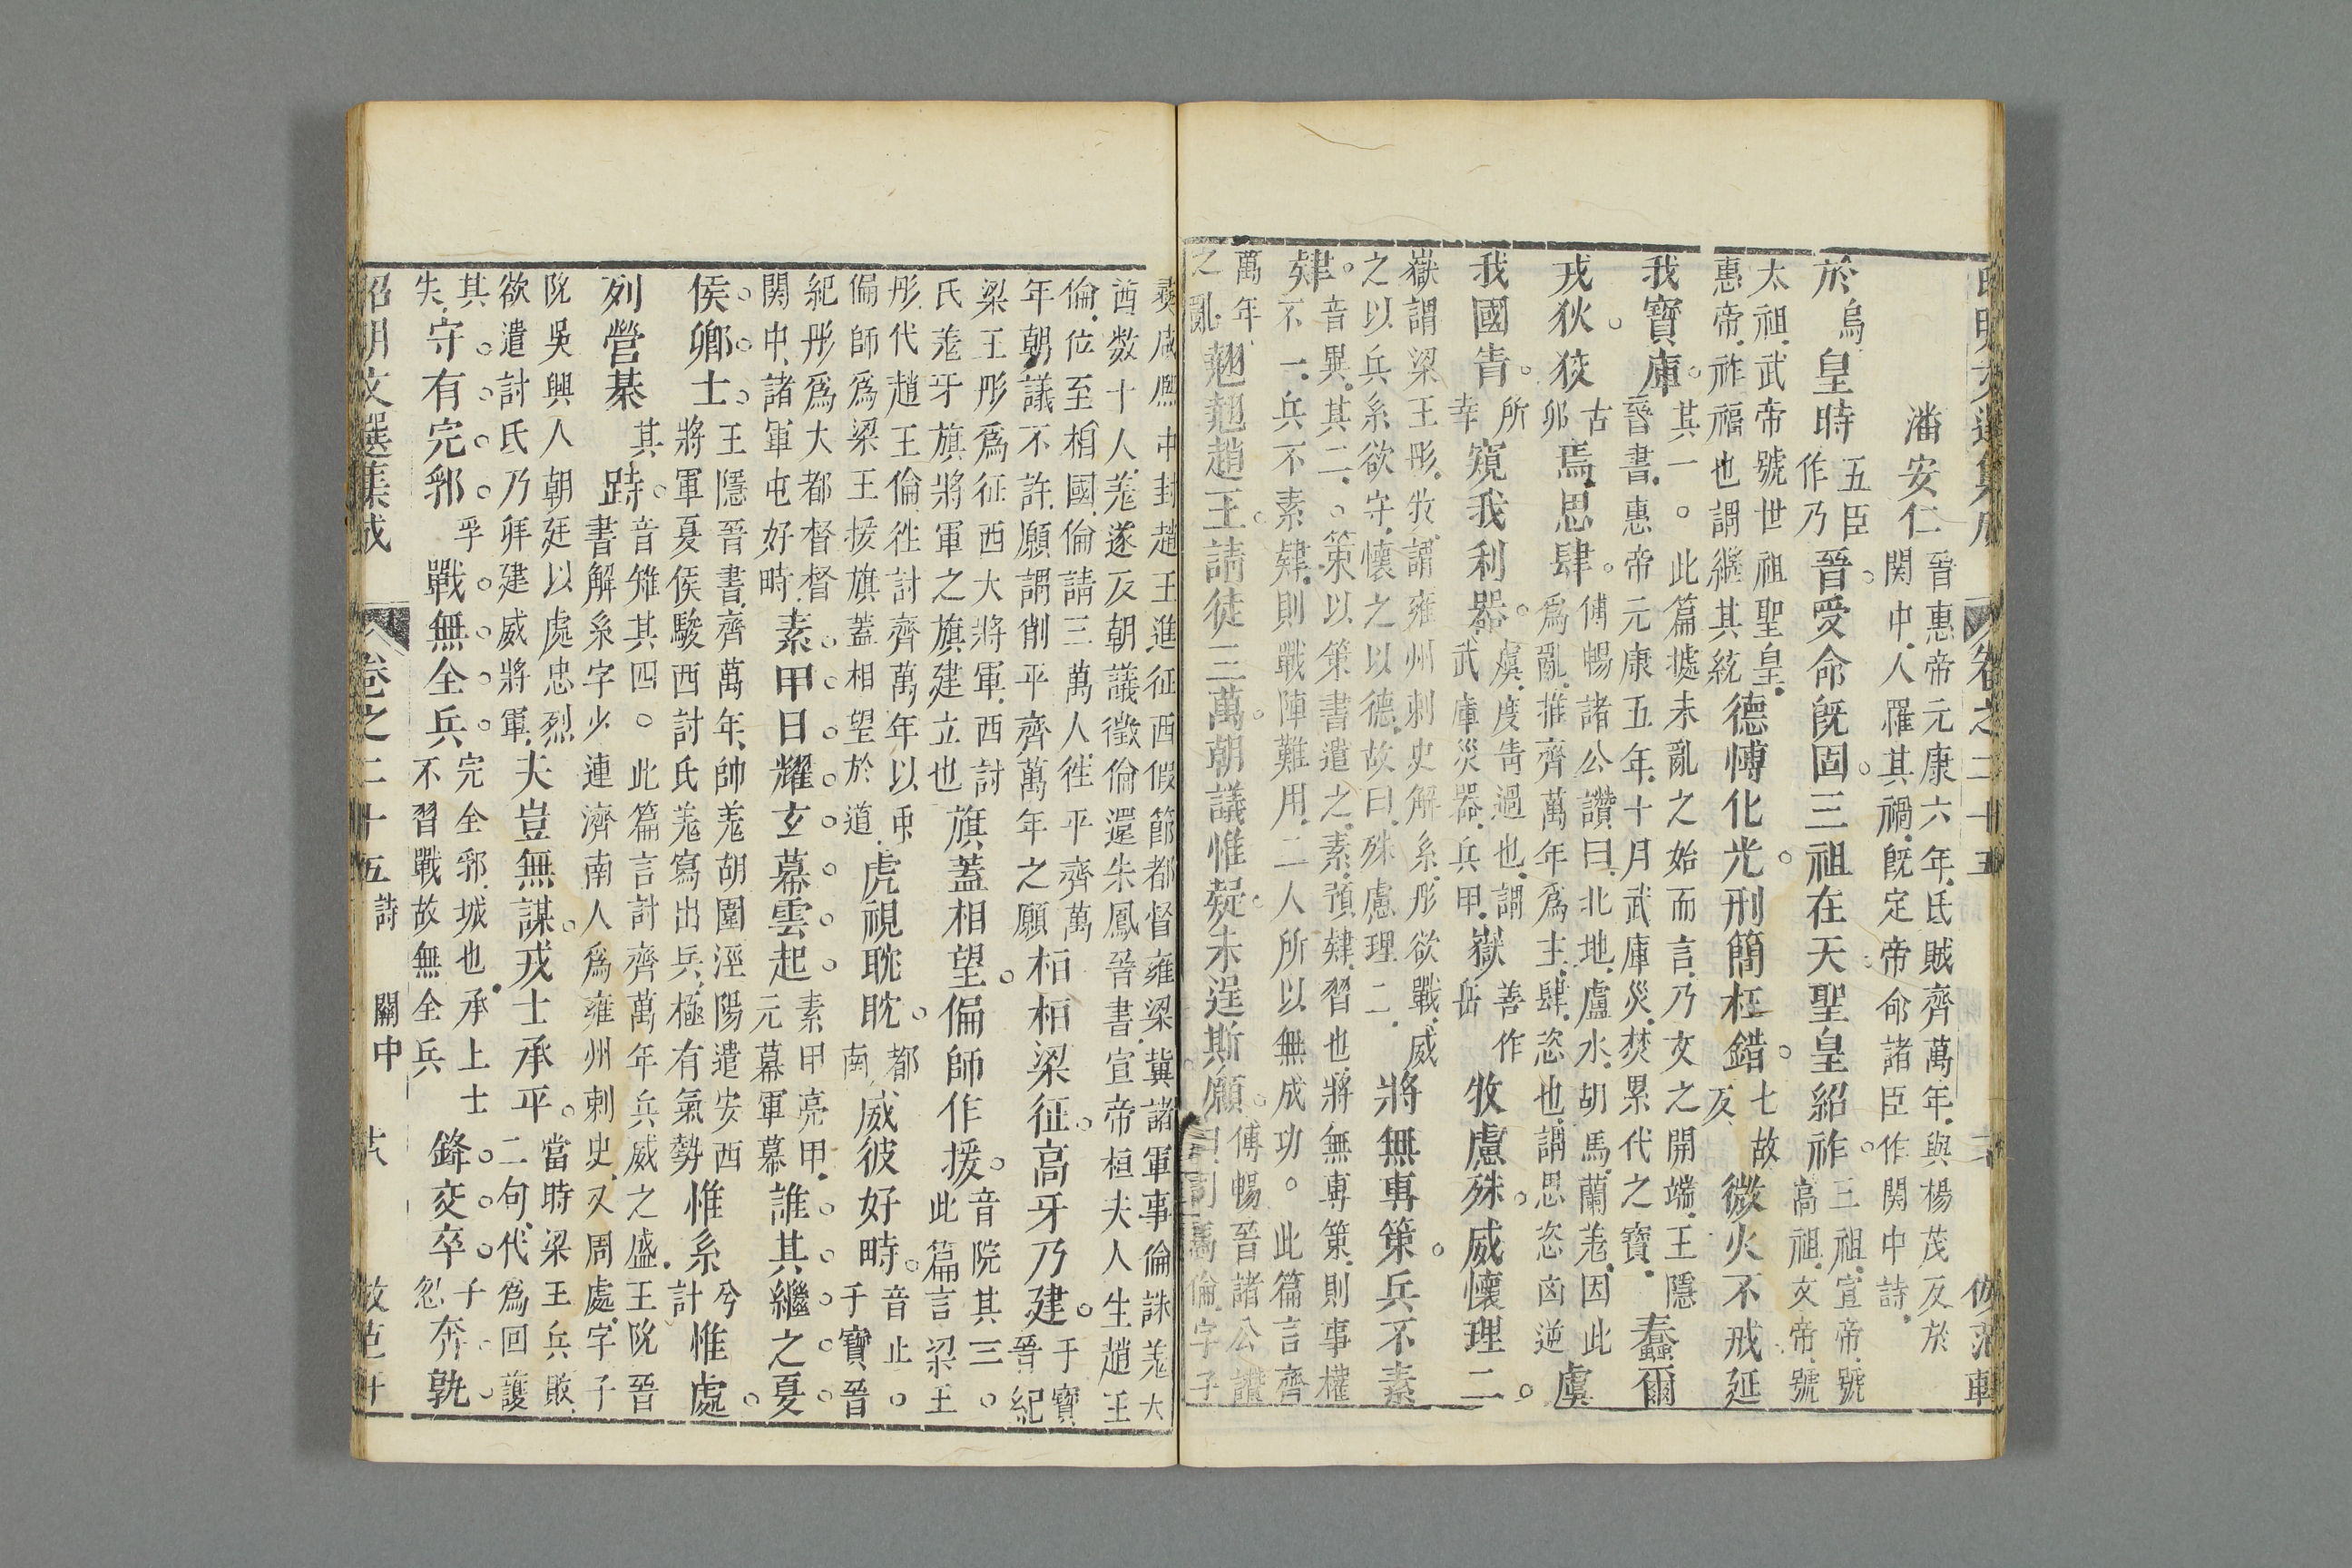 昭明文選集成 卷之二十五 倣范軒
潘安仁 晉惠帝元康六年氐賊齊萬年與楊茂反於
関中人罹其禍旣定帝命諸臣作関中詩
於烏皇時五臣作乃晉受命旣固三祖在天聖皇紹祚三祖宣帝號
高祖文帝號
太祖武帝號世祖聖皇
惠帝祚福也謂繼其統德愽化光刑簡枉錯七故反微火不戒延
我寶庫其一。此篇墟未亂之始而言乃文之開端王隱
晉書惠帝元康五年十月武庫災焚累代之寶蠢爾
戎狄狡古夘焉思肆傅暢諸公讚曰北地盧水胡馬蘭羗因此
爲亂推齊萬年爲主肆恣也謂思恣囟逆虞
我國眚所幸窺我利器虞度眚過也謂
武庫災器兵甲嶽善作岳牧慮殊威懷理二
嶽謂梁王彤牧謂雍州刺史解系彤欲戰威
之以兵系欲守懷之以德故曰殊慮理二將無專策兵不素
肄。音異其二。策以策書遣之素預肄習也將無專策則事權
不一兵不素肄則戰陣難用二人所以無成功。此篇言齊
萬年之亂翹翹趙王請徒三萬朝議惟疑未逞斯願傅暢晉諸公讃
曰司馬倫字子
彞咸熈中封趙王進征西假節都督雍梁冀諸軍事倫誅羗大
酋数十人羗遂反朝議徵倫還朱鳳晉書宣帝桓夫人生趙王
倫位至相國倫請三萬人徃平齊萬
年朝議不許願謂削平齊萬年之願桓桓梁征高牙乃建于寶
晉紀
梁王彤爲征西大將軍西討
氐羗牙旗將軍之旗建立也旗蓋相望偏師作援音院其三。
此篇言梁王
彤代趙王倫徃討齊萬年以
偏師爲梁王援旗蓋相望於道虎視耽耽都南威彼好畤音止。
于寶晉
紀彤爲大都督督
関中諸軍屯好畤素甲日耀玄幕雲起素甲亮甲
元幕軍幕誰其繼之夏
侯卿士王隱晉書齊萬年帥羗胡圍涇陽遣安西
將軍夏侯駿西討氐羗寫出兵極有氣勢惟系兮計惟處
列營棊其跱音雉其四。此篇言討齊萬年兵威之盛王阮晉
書解系字少連濟南人爲雍州刺史又周處字子
阮吳興人朝廷以處忠烈
欲遣討氐乃拜建威將軍夫豈無謀戎士承平當時梁王兵敗
二句代爲回護
其失守有完郛孚戰無全兵完全郛城也承上士
不習戰故無全兵鋒交卒子忽奔孰
昭明文選集成 卷之二十五 詩 關中